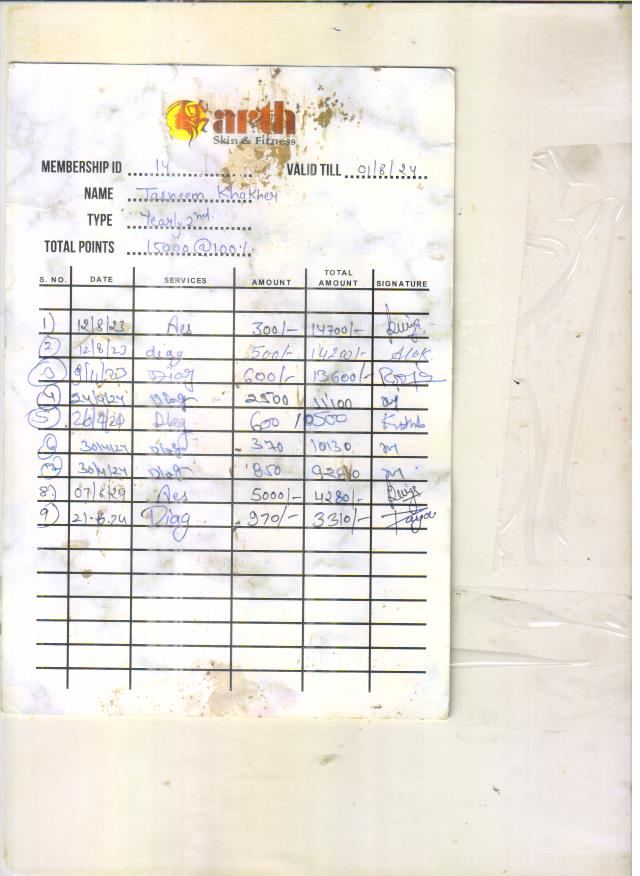 arth
Skin & Fitness
MEMBERSHIP ID 14 VALID TILL 01/8/24
NAME Tasneem Khakher
TYPE Yearly 2nd.
TOTAL POINTS 15000 @100%.
S. NO. DATE SERVICES AMOUNT TOTAL AMOUNT SIGNATURE
1) 12/8/23 Aes 300/- 14700/-
2) 12/8/23 diag 500/- 14200/- Alok
3) 9/11/23 Diag 600/- 13600/-
4) 24/4/24 Diag 2500 11100
5) 26/4/24 Diag 600 10500
6) 30/4/24 Diag 370 10130
7) 30/4/24 Diag 850 9280
8) 07/6/24 Aes 5000/- 4280/-
9) 21.6.24 Diag.. 970/- 3310/-